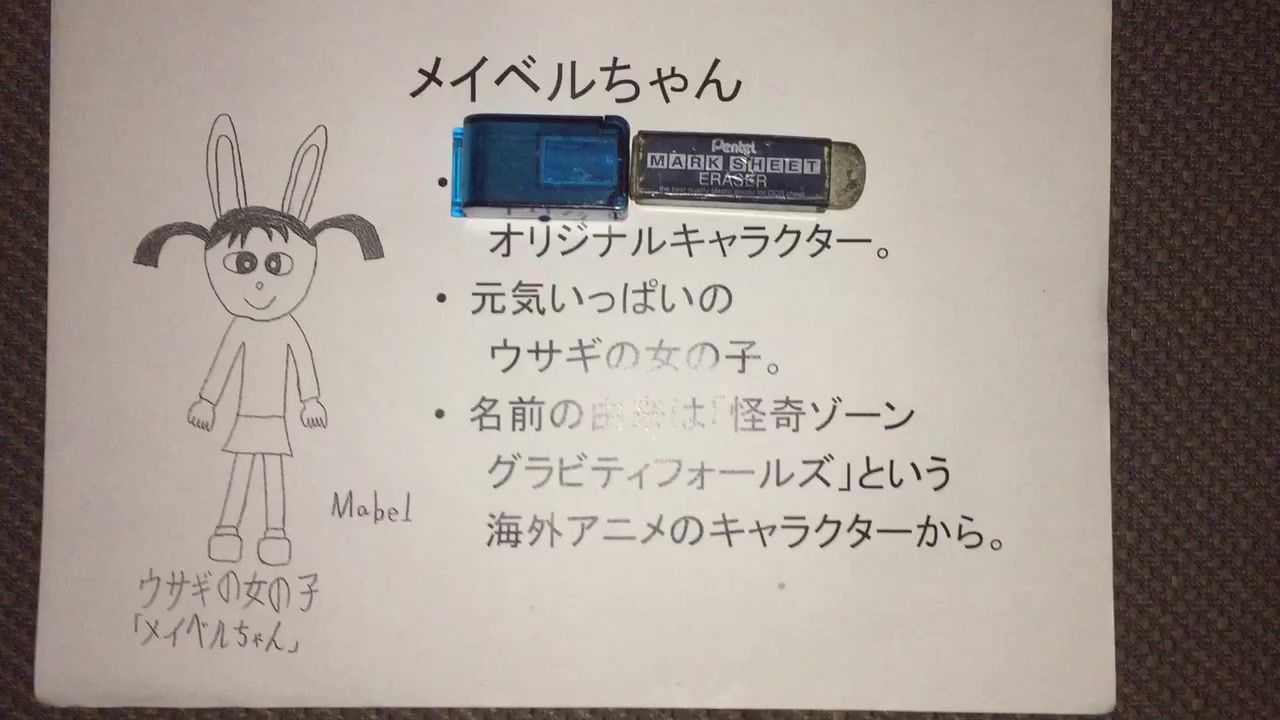 メイベルちゃん
Pentel
MARK SHEET
ERASER
the best quality plastic eraser for OCR sheet
オリジナルキャラクター。
• 元気いっぱいの
ウサギの女の子。
• 名前の由来は「怪奇ゾーン
グラビティフォールズ」という
海外アニメのキャラクターから。
Mabel
ウサギの女の子
「メイベルちゃん」